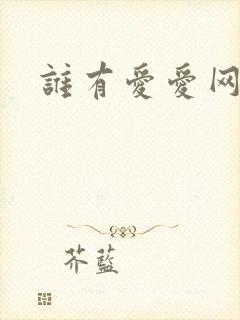 誰有愛愛网
芥藍